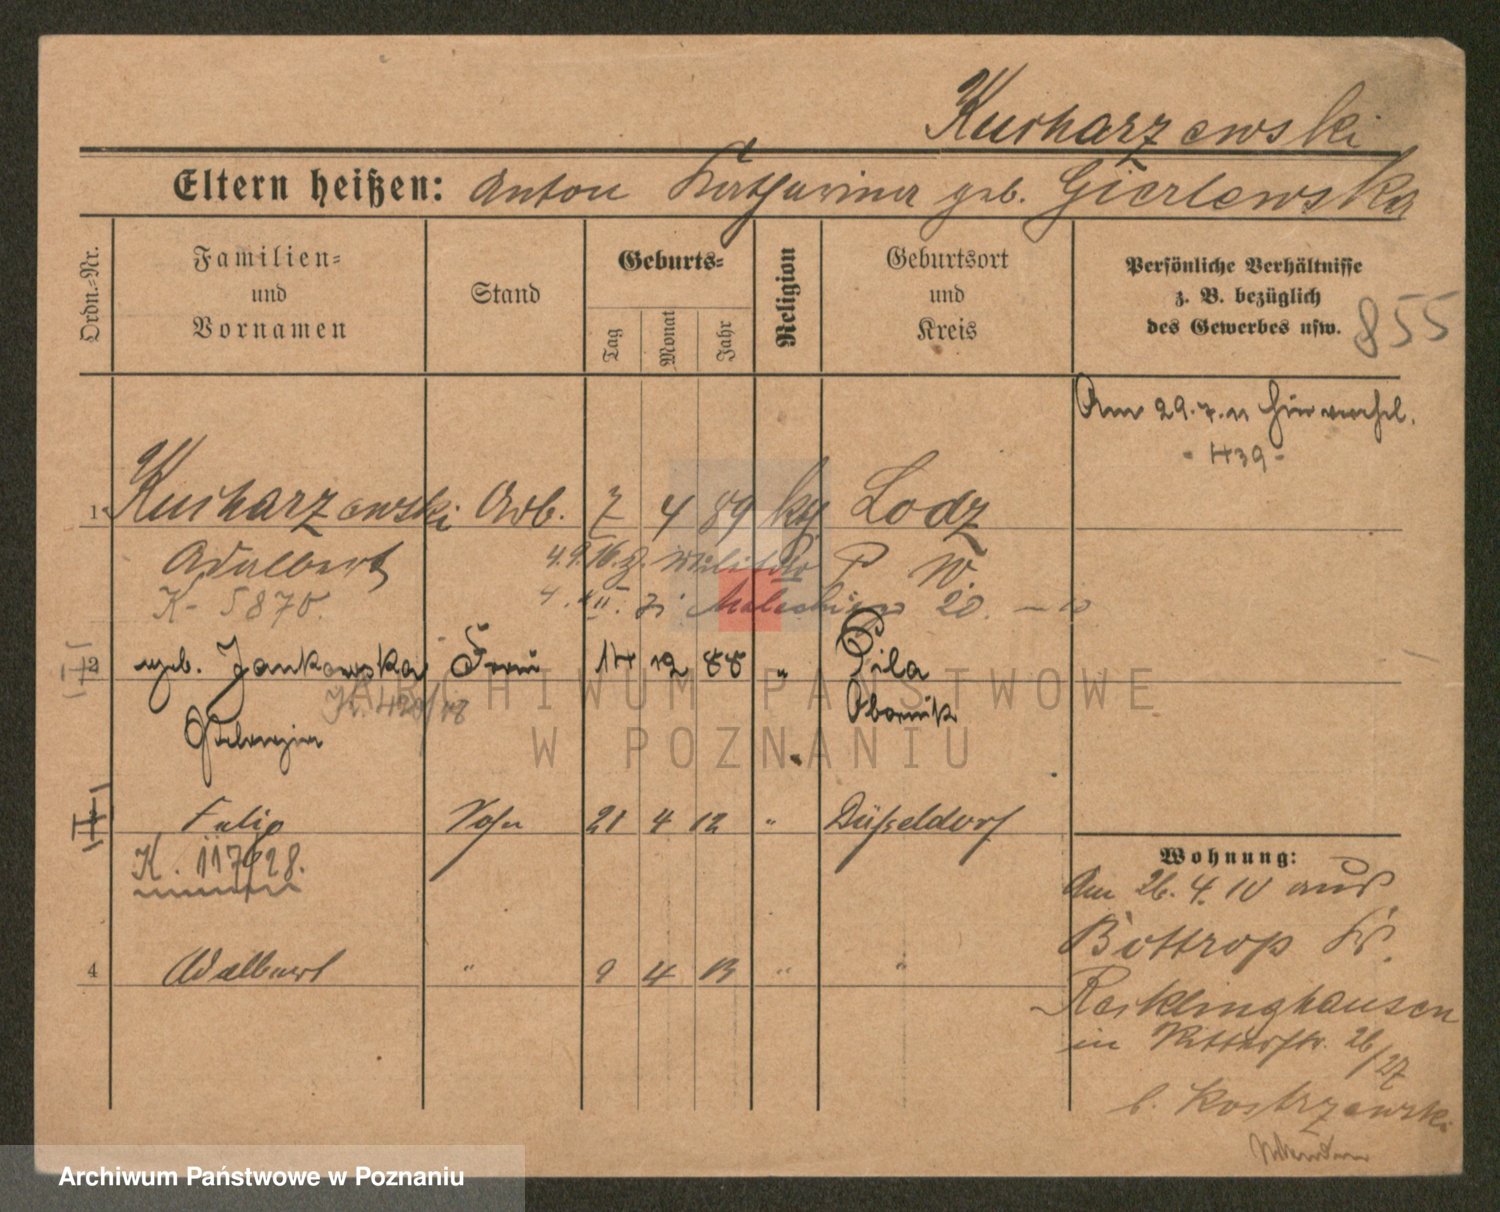 Kucharzewski
Eltern heißen: Anton Katharina geb. Gierlewska
Ordn.=Nr.
Familien=
und
Vornamen
Stand
Geburts=
Tag
Monat
Jahr
Religion
Geburtsort
und
Kreis
Persönliche Verhältnisse
z. B. bezüglich
des Gewerbes usw.
855
Am 29.7.11 hier
- 439 -
1 Kucharzewski Arb. 7 4 89 kth Lodz
Adalbert 4.9.16. z. Militär P W.
K- 5870. 4. XII. 20.
2 geb. Jankowska Frau 14 12 88 " Pila
Obornik
Felip Sohn 21 4 12 " Düsseldorf
K. 117/28.
4 Adalbert " 9 4 13 " "
Wohnung:
Am 26.4.10 aus
Bottrop Kr.
Recklinghausen
in Ritterstr. 26/27
b. Kostrzewski
ARCHIWUM PAŃSTWOWE
W POZNANIU
Archiwum Państwowe w Poznaniu